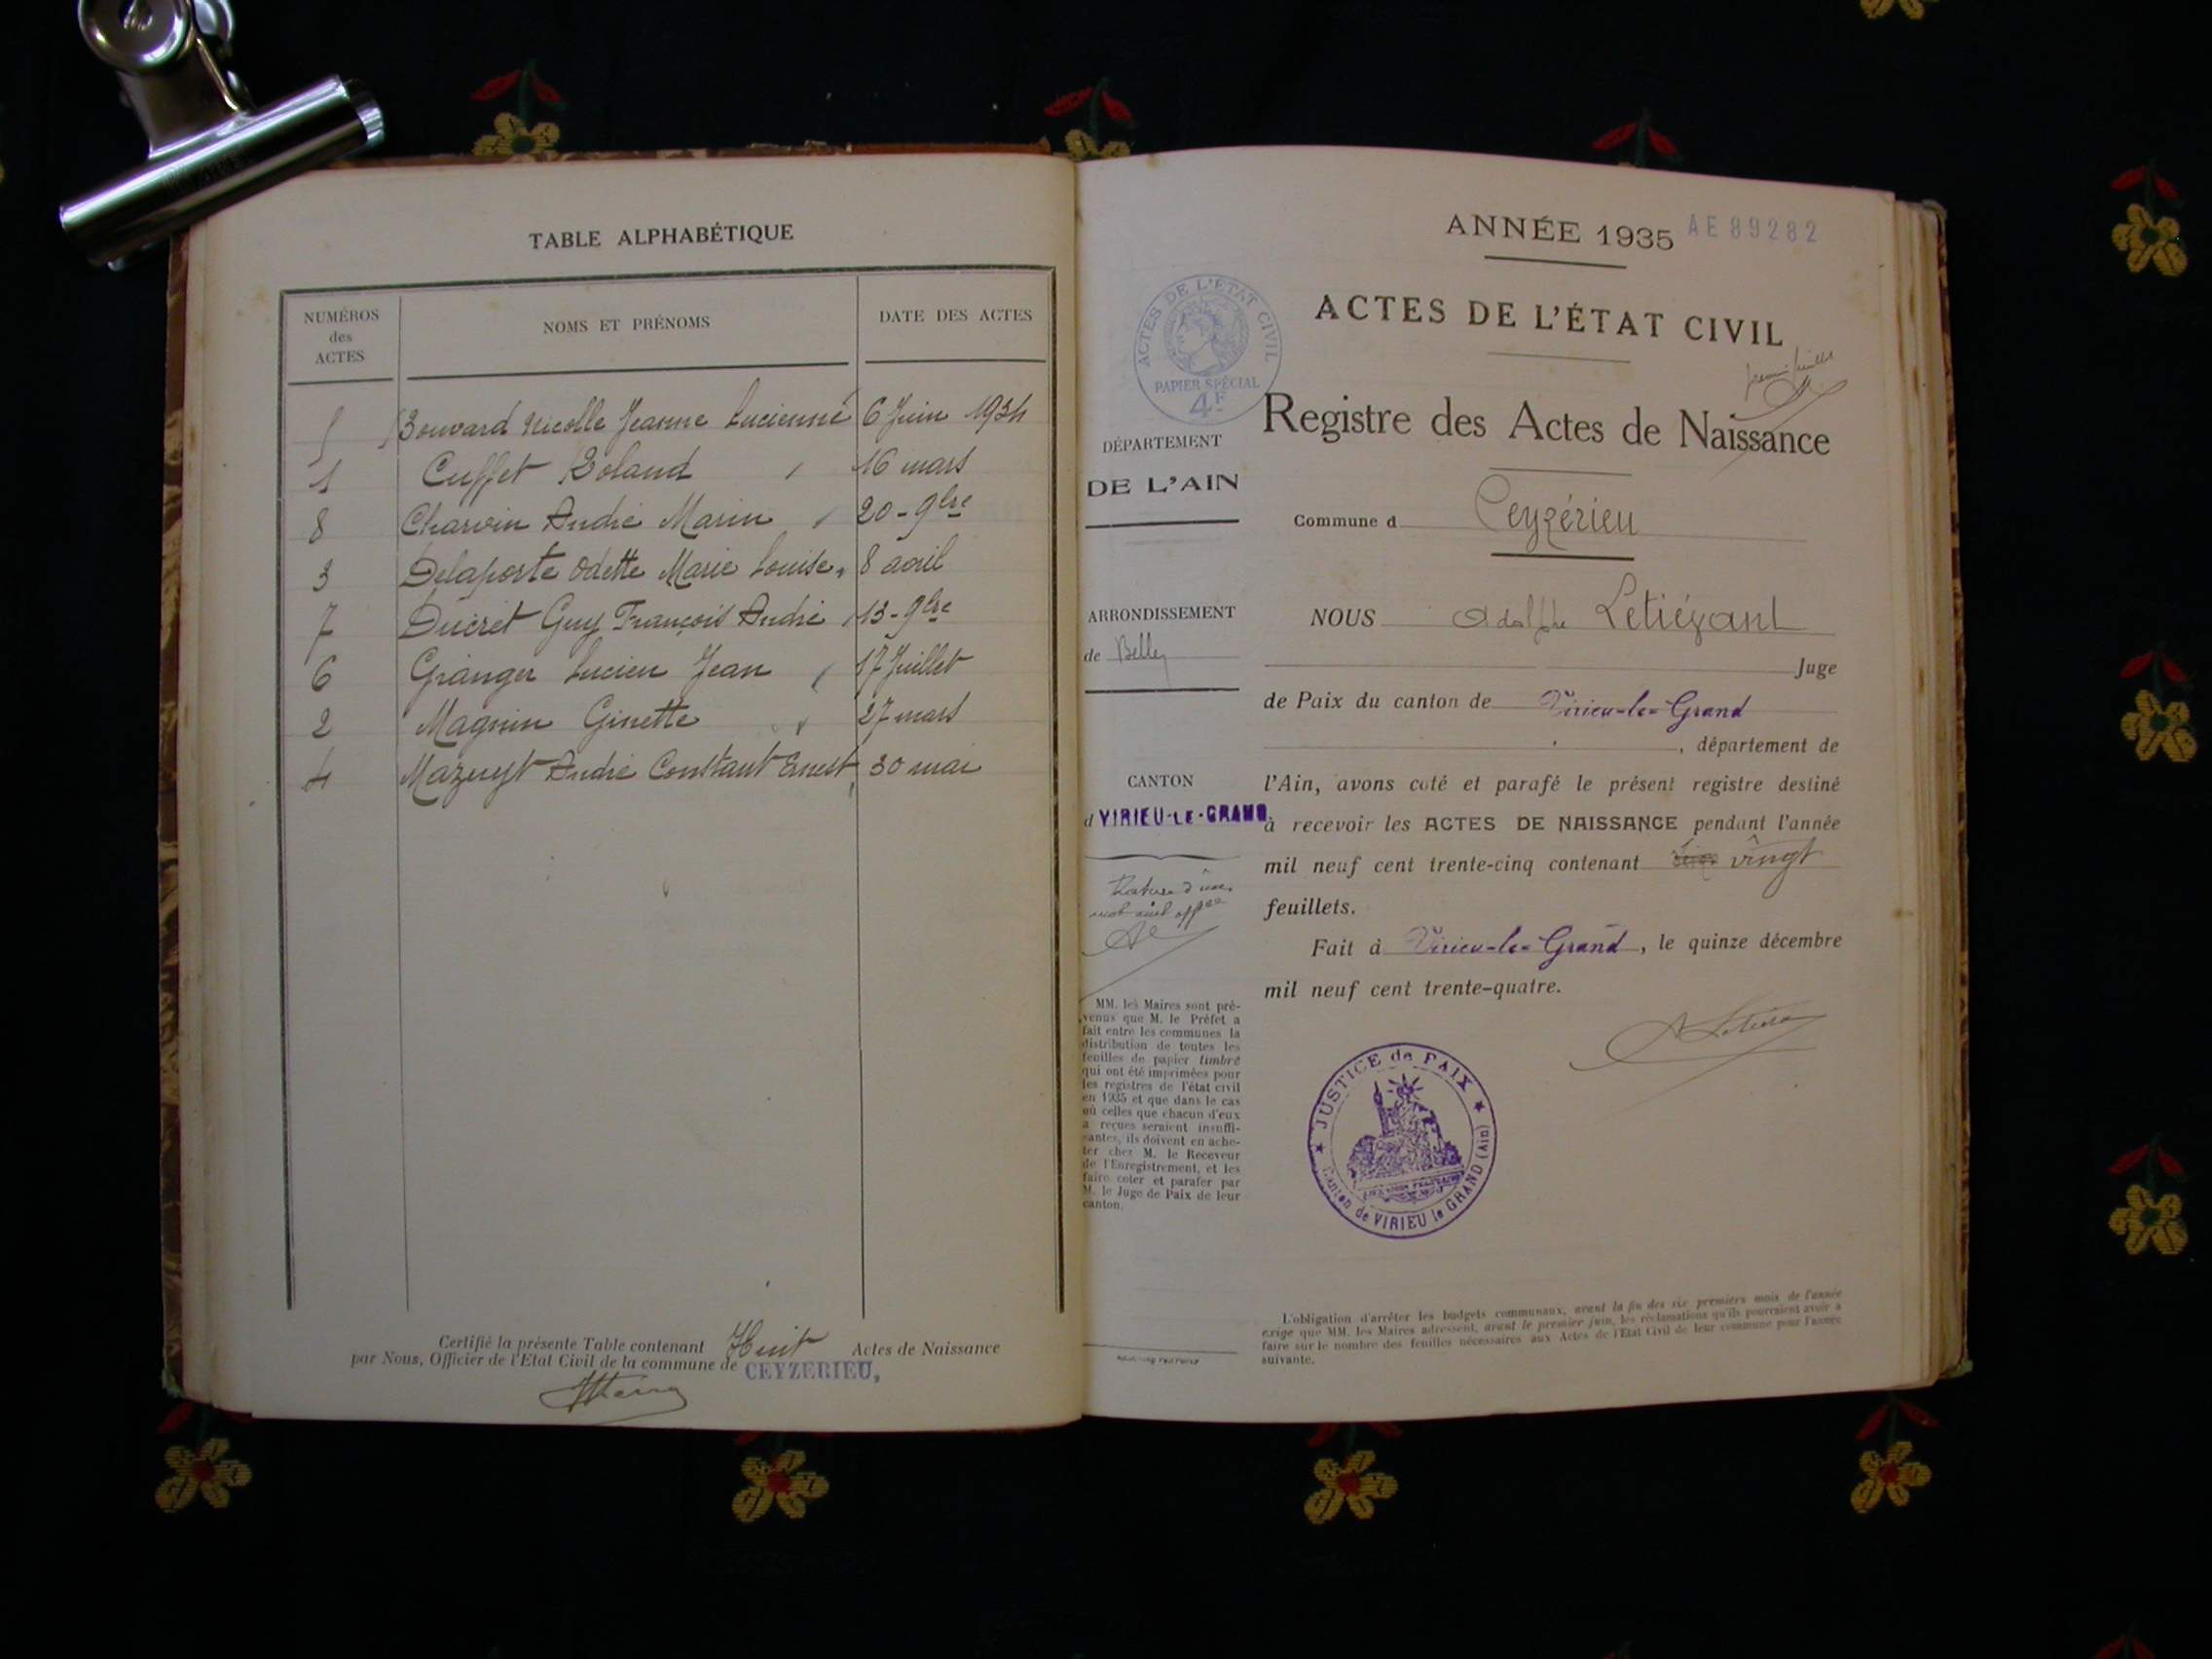 TABLE ALPHABÉTIQUE
NUMÉROS des ACTES
NOMS ET PRÉNOMS
DATE DES ACTES
5 Bouvard Nicolle Jeanne Lucienne 6 Juin 1934
1 Cuffet Roland 16 mars
8 Charvin André Marin 20 - 9bre
3 Delaporte Odette Marie Louise 8 avril
7 Ducret Guy François André 13 - 9bre
6 Granger Lucien Jean 17 Juillet
2 Magnin Ginette 27 mars
4 Mazuyt André Constant Ernest 30 mai
Certifié la présente Table contenant Huit Actes de Naissance
par Nous, Officier de l'Etat Civil de la commune de CEYZERIEU,
ACTES DE L'ÉTAT CIVIL
PAPIER SPÉCIAL
4F
DÉPARTEMENT
DE L'AIN
ARRONDISSEMENT
de Belley
CANTON
d VIRIEU-LE-GRAND
MM. les Maires sont pré-
venus que M. le Préfet a
fait entre les communes la
distribution de toutes les
feuilles de papier timbré
qui ont été imprimées pour
les registres de l'état civil
en 1935 et que dans le cas
où celles que chacun d'eux
a reçues seraient insuffi-
santes, ils doivent en ache-
ter chez M. le Receveur
de l'Enregistrement, et les
faire coter et parafer par
M. le Juge de Paix de leur
canton.
ANNÉE 1935 AE 89282
ACTES DE L'ÉTAT CIVIL
Registre des Actes de Naissance
Commune d Ceyzérieu
NOUS Adolphe Letiévant
Juge
de Paix du canton de Virieu-le-Grand
, département de
l'Ain, avons coté et parafé le présent registre destiné
à recevoir les ACTES DE NAISSANCE pendant l'année
mil neuf cent trente-cinq contenant vingt
feuillets.
Fait à Virieu-le-Grand, le quinze décembre
mil neuf cent trente-quatre.
JUSTICE de PAIX
Canton de VIRIEU le GRAND (Ain)
L'obligation d'arrêter les budgets communaux, avant la fin des six premiers mois de l'année
exige que MM. les Maires adressent, avant le premier juin, les réclamations qu'ils pourraient avoir à
faire sur le nombre des feuilles nécessaires aux Actes de l'Etat Civil de leur commune pour l'année
suivante.